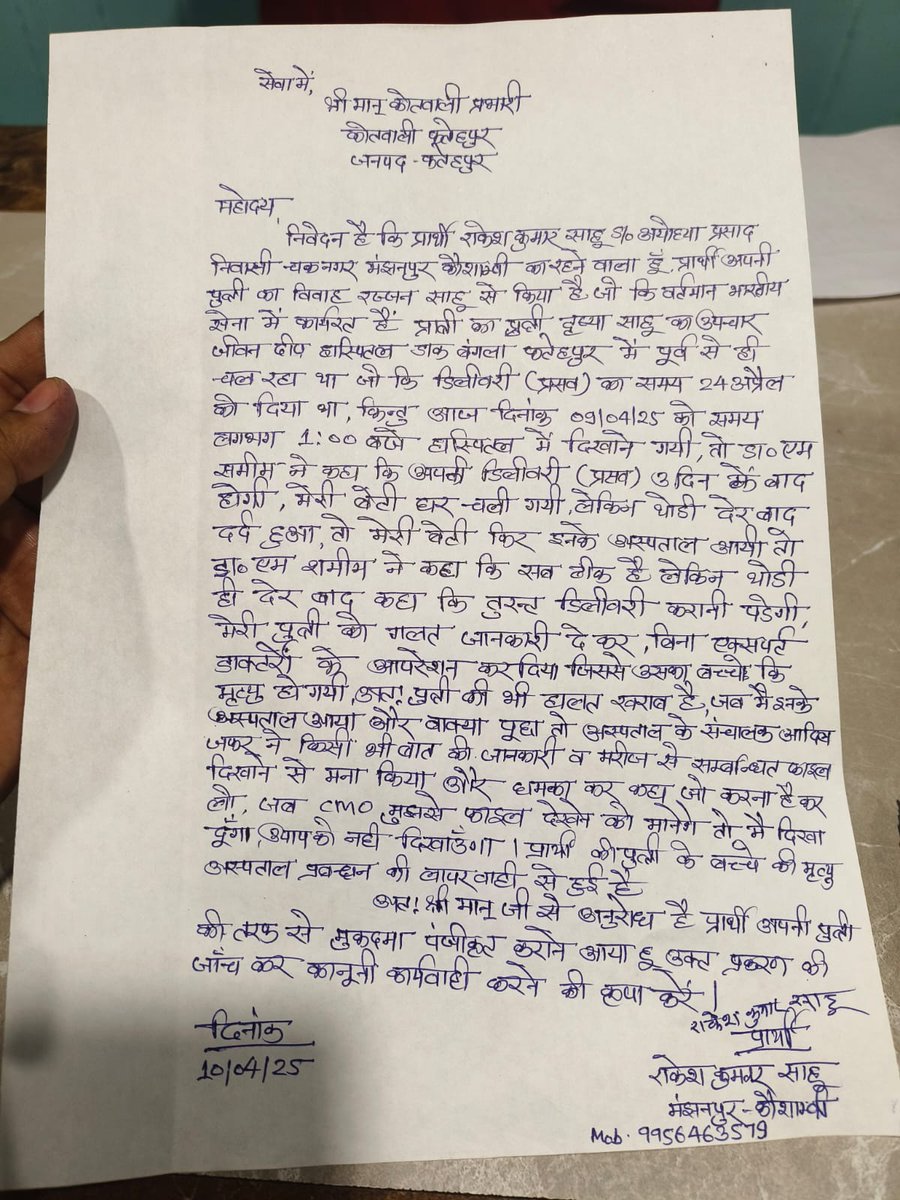 सेवा में,
श्री मान् कोतवाली प्रभारी
कोतवाली फतेहपुर
जनपद - फतेहपुर
महोदय,
निवेदन है कि प्रार्थी राकेश कुमार साहू S/o अयोध्या प्रसाद
निवासी चकनगर मंझनपुर कौशाम्बी का रहने वाला हूँ, प्रार्थी अपनी
पुत्री का विवाह रज्जन साहू से किया है, जो कि वर्तमान भारतीय
सेना में कार्यरत हैं प्रार्थी का पुत्री साहू का उपचार
जीवन दीप हास्पिटल डाक बंगला फतेहपुर में पूर्व से ही
चल रहा था जो कि डिलीवरी (प्रसव) का समय 24 अप्रैल
को दिया था, किन्तु आज दिनांक 09/04/25 को समय
लगभग 1:00 बजे हास्पिटल में दिखाने गयी, तो डा० एम
समीम ने कहा कि अपनी डिलीवरी (प्रसव) 3 दिन के बाद
होगी, मेरी बेटी घर चली गयी, लेकिन थोडी देर बाद
दर्द हुआ, तो मेरी बेटी फिर इनके अस्पताल आयी तो
डा० एम शमीम ने कहा कि सब ठीक है लेकिन थोडी
ही देर बाद कहा कि तुरन्त डिलीवरी करानी पडेगी,
मेरी पुत्री को गलत जानकारी दे कर, बिना एक्सपर्ट
डाक्टरों के आपरेशन कर दिया जिससे उसका बच्चे कि
मृत्यु हो गयी, अतः पुत्री की भी हालत खराब है, जब मै इनके
अस्पताल आया और वाक्या पूछा तो अस्पताल के संचालक आदिव
जफर ने किसी भी बात की जानकारी व मरीज से सम्बन्धित फाइल
दिखाने से मना किया और धमका कर कहा जो करना है कर
लो, जब CMO मुझसे फाइल देखने को मानेगे तो मै दिखा
दूँगा, आपको नही दिखाँउगा । प्रार्थी की पुत्री के बच्चे की मृत्यु
अस्पताल प्रबन्धन की लापरवाही से हुई है
अतः श्री मान् जी से अनुरोध है प्रार्थी अपनी पुत्री
की तरफ से मुकदमा पंजीकृत कराने आया हू उक्त प्रकरण की
जाँच कर कानूनी कार्यवाही करने की कृपा करें ।
राकेश कुमार साहू
दिनांक
प्रार्थी
10/04/25
राकेश कुमार साहू
मंझनपुर - कौशाम्बी
Mob. 9956463579